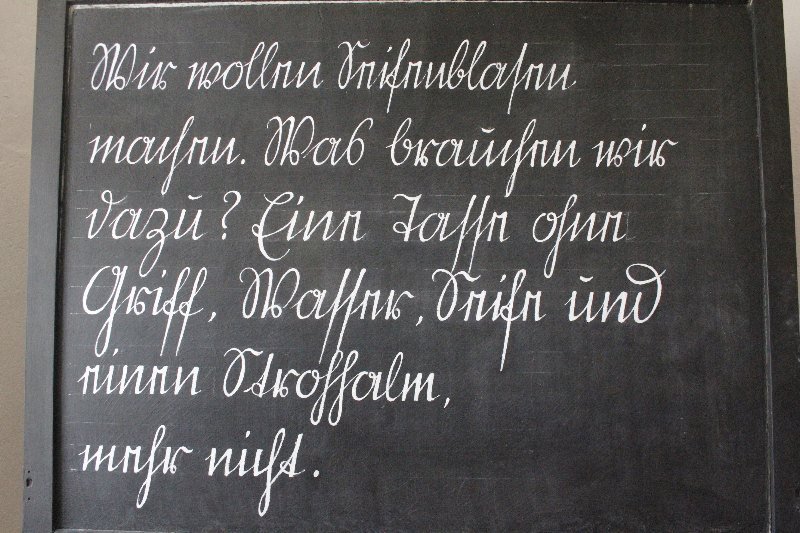 Wir wollen Seifenblasen
machen. Was brauchen wir
dazu? Eine Tasse ohne
Griff, Wasser, Seife und
einen Strohhalm,
mehr nicht.